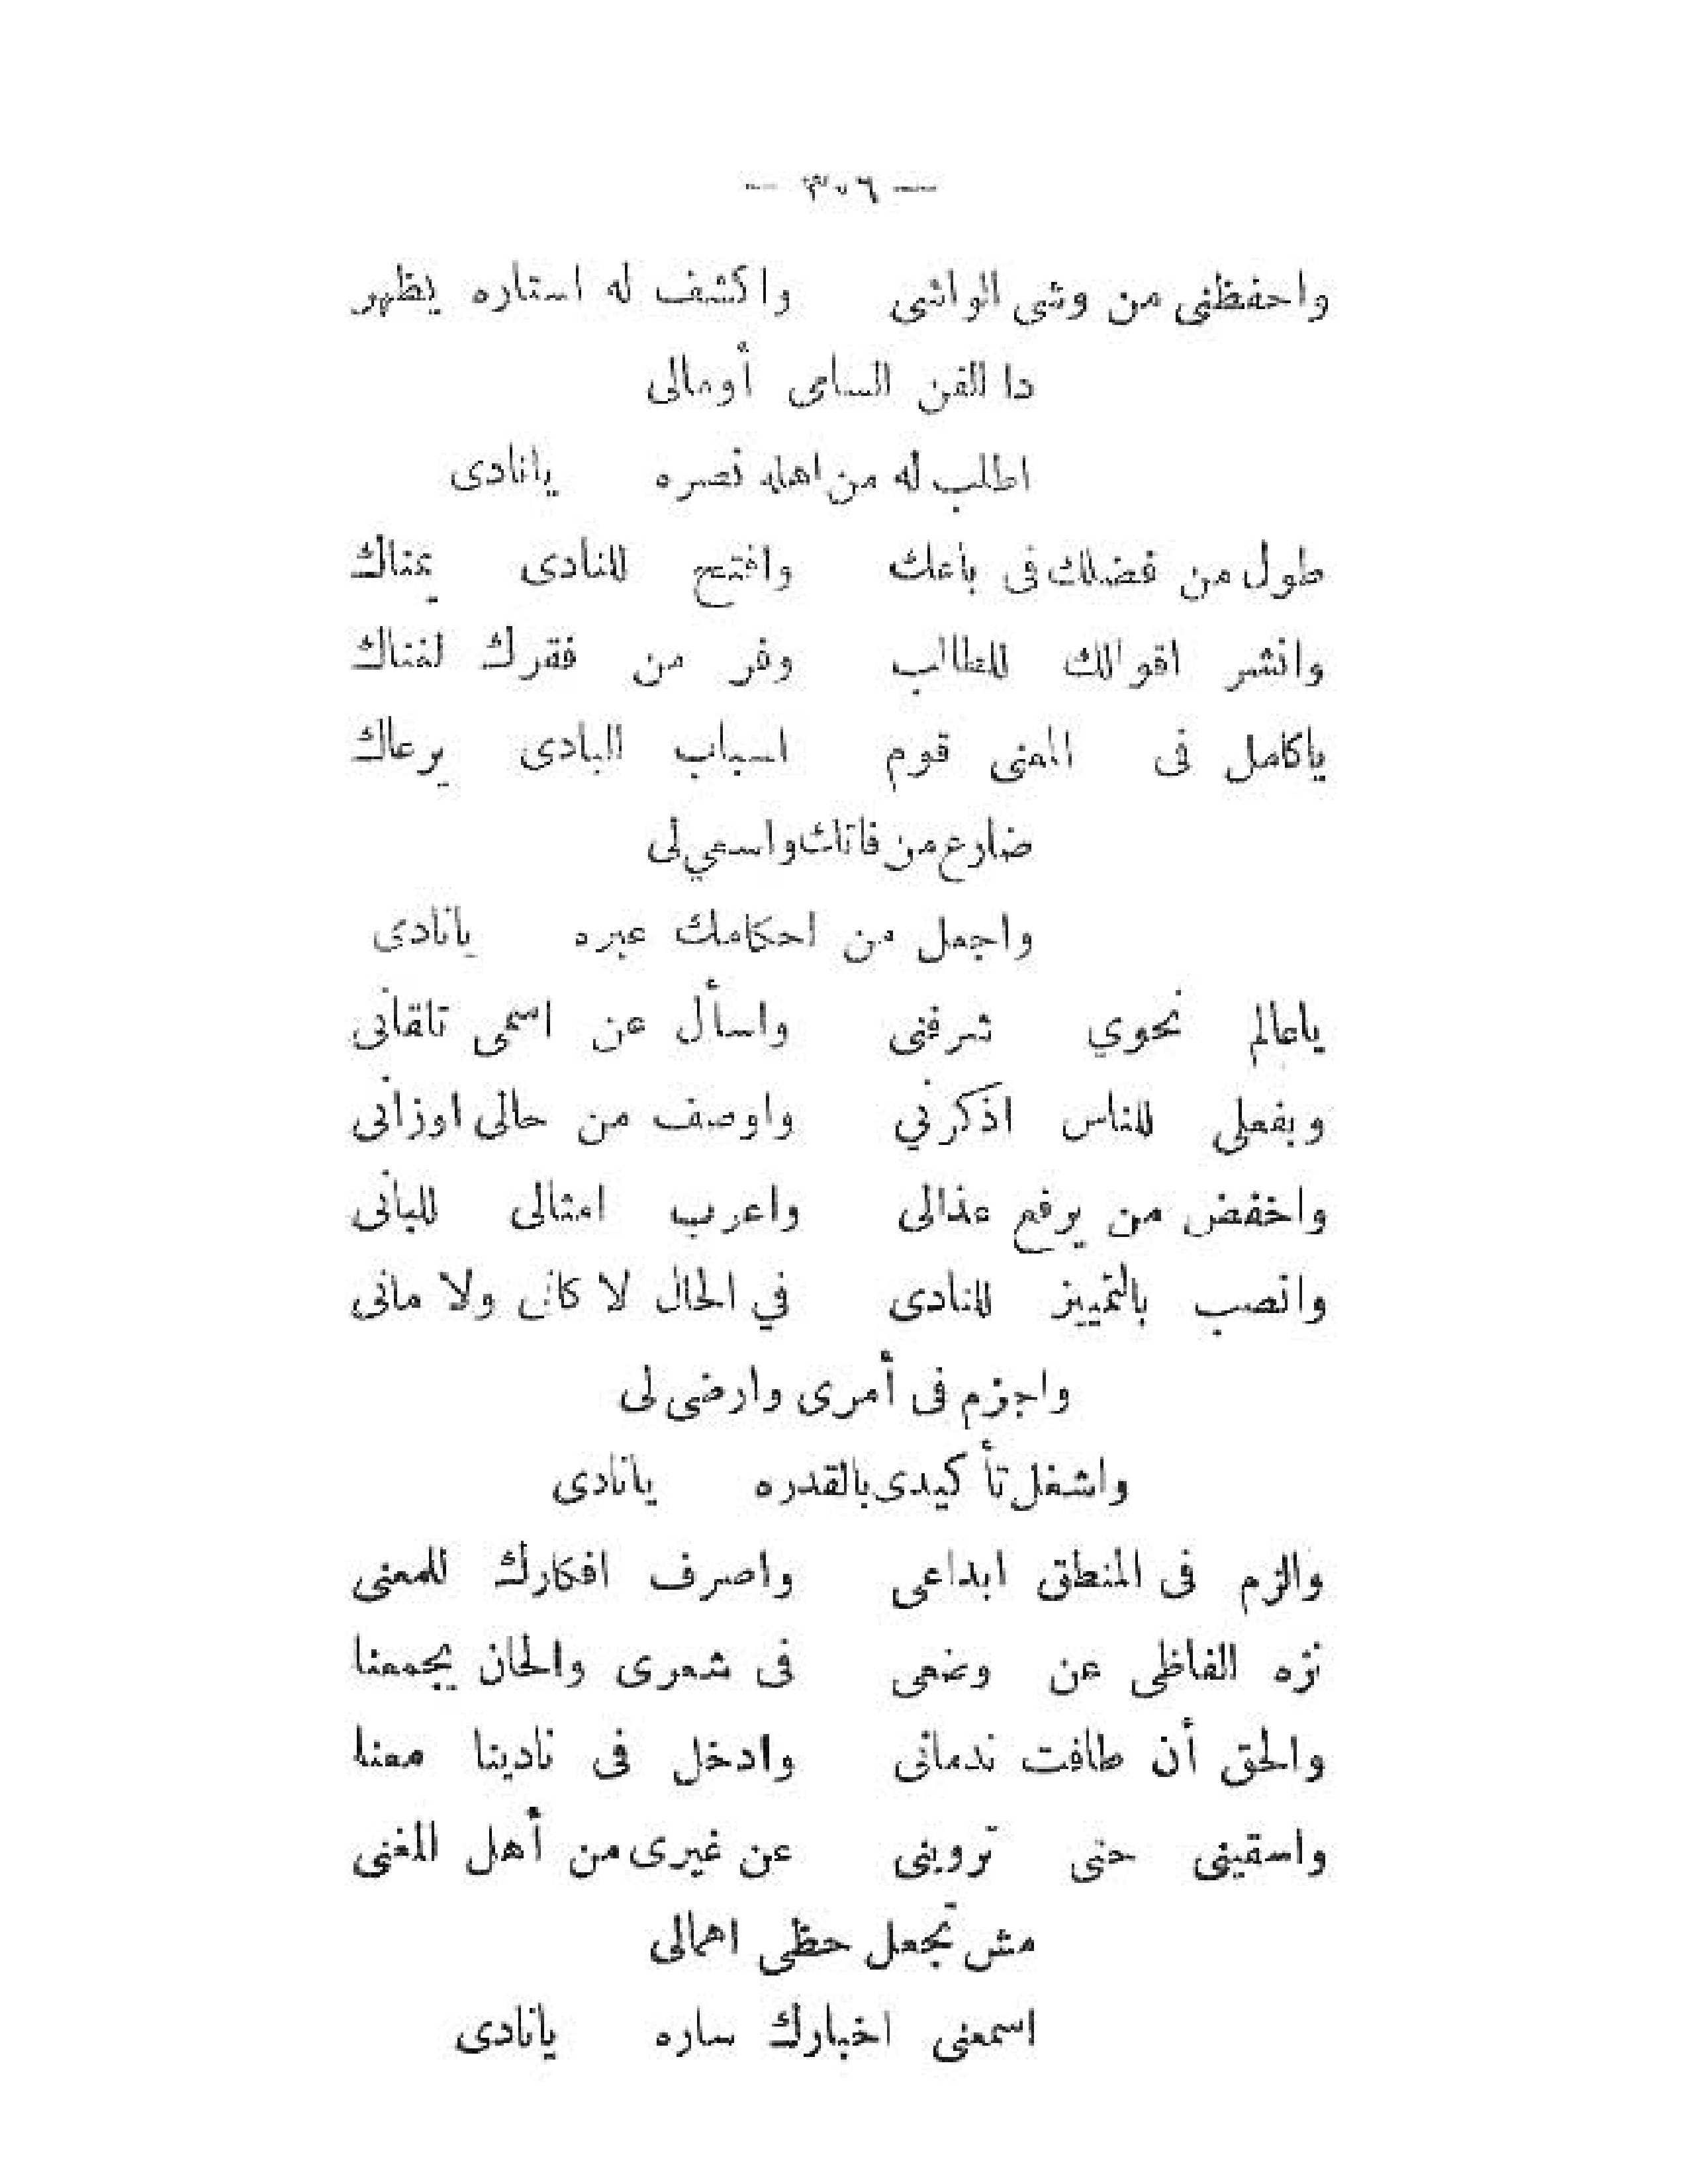 — ٣٠٦ —
واحفظنى من وشى الواشى واكشف له استاره يظهر
دا الفن السامى أومالى
اطلب له من اهله نصره يانادى
طول من فضلك فى باعك وافتح للنادى يمناك
وانشر اقوالك للطالب وفر من فقرك لغناك
ياكامل فى المعنى قوم اسباب البادى يرعاك
ضارع من فاتك واسعي لى
واجعل من احكامك عبره يانادى
ياعالم نحوي شرفنى واسأل عن اسمى تلقانى
وبفعلى للناس اذكرني واوصف من حالى اوزانى
واخفض من يرفع عذالى واعرب امثالى للبانى
وانصب بالتمييز للنادى في الحال لا كانى ولا مانى
واجزم فى أمرى وارضى لى
واشغل تأكيدى بالقدره يانادى
والزم فى المنطق ابداعى واصرف افكارك للمعنى
نزه الفاظى عن وضعى فى شعرى والحان يجمعنا
والحق أن طافت ندمانى وادخل فى نادينا معنا
واسقينى حتى تروينى عن غيرى من أهل المغنى
مش تجعل حظى اهمالى
اسمعنى اخبارك ساره يانادى